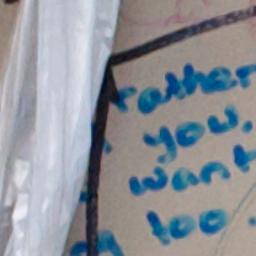 rather
you.
want
too.